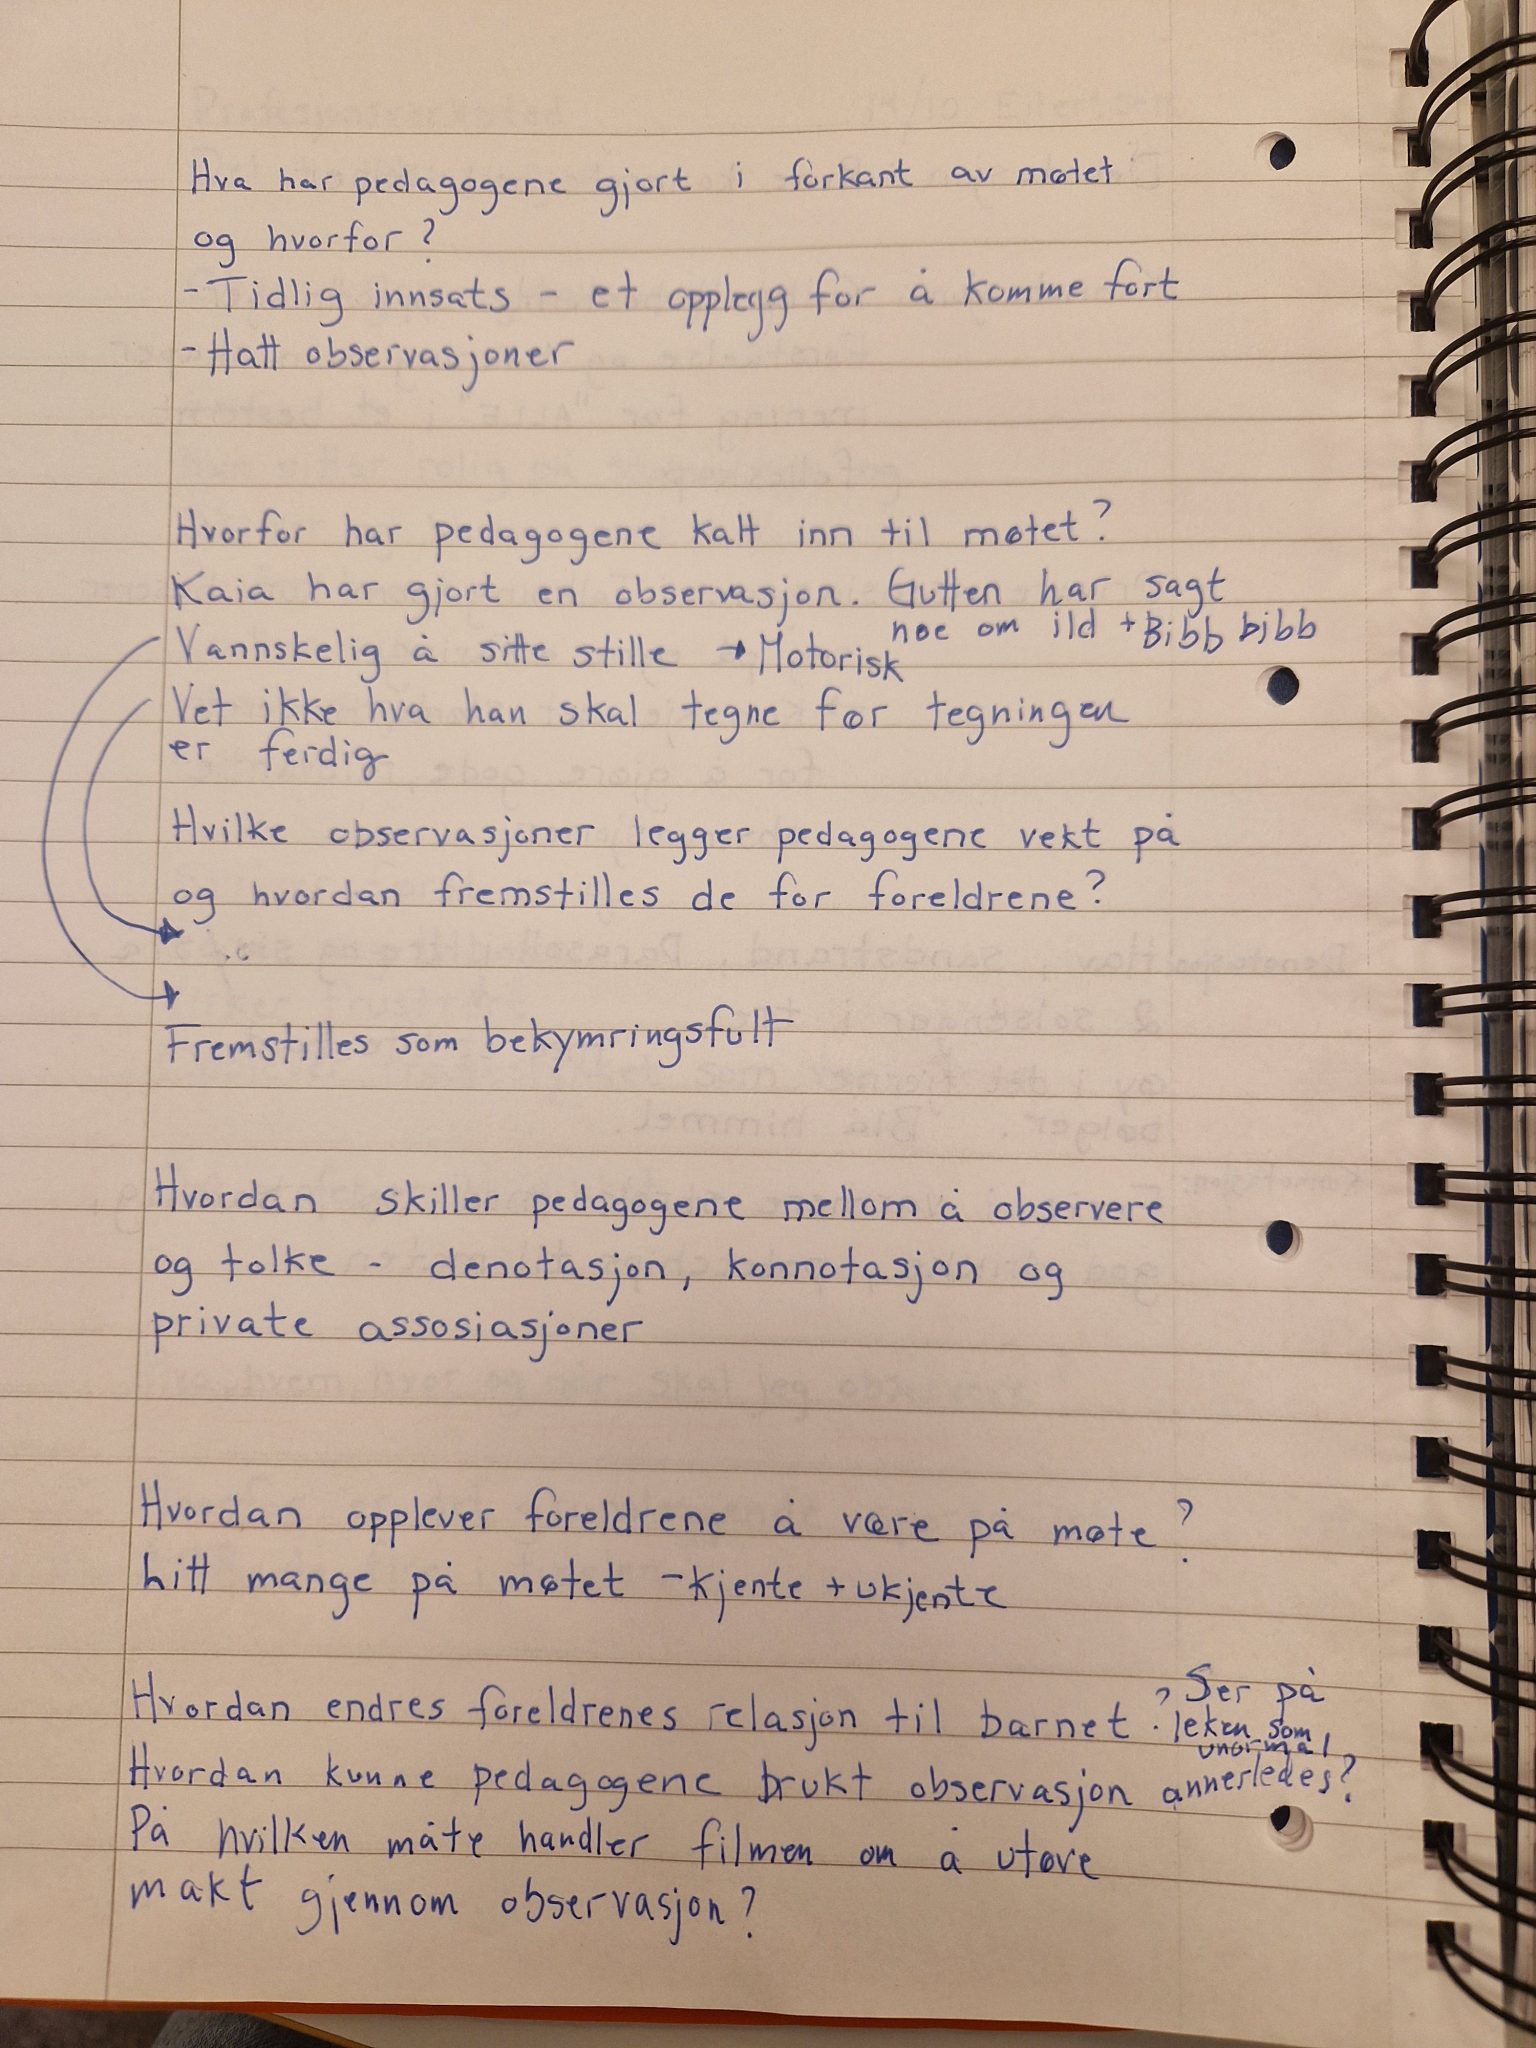 Hva har pedagogene gjort i forkant av møtet
og hvorfor?
- Tidlig innsats - et opplegg for å komme fort
- Hatt observasjoner
Hvorfor har pedagogene kalt inn til møtet?
Kaia har gjort en observasjon. Gutten har sagt
noe om ild + Bibb bibb
Vannskelig å sitte stille → Motorisk
Vet ikke hva han skal tegne før tegningen
er ferdig
Hvilke observasjoner legger pedagogene vekt på
og hvordan fremstilles de for foreldrene?
Fremstilles som bekymringsfult
Hvordan skiller pedagogene mellom å observere
og tolke - denotasjon, konnotasjon og
private assosiasjoner
Hvordan opplever foreldrene å være på møte?
Litt mange på møtet - kjente + ukjente
Hvordan endres foreldrenes relasjon til barnet?
Ser på
leken som
unormal
Hvordan kunne pedagogene brukt observasjon annerledes?
På hvilken måte handler filmen om å utøve
makt gjennom observasjon?